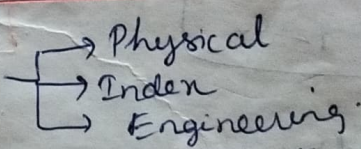 Physical
Index
Engineering.